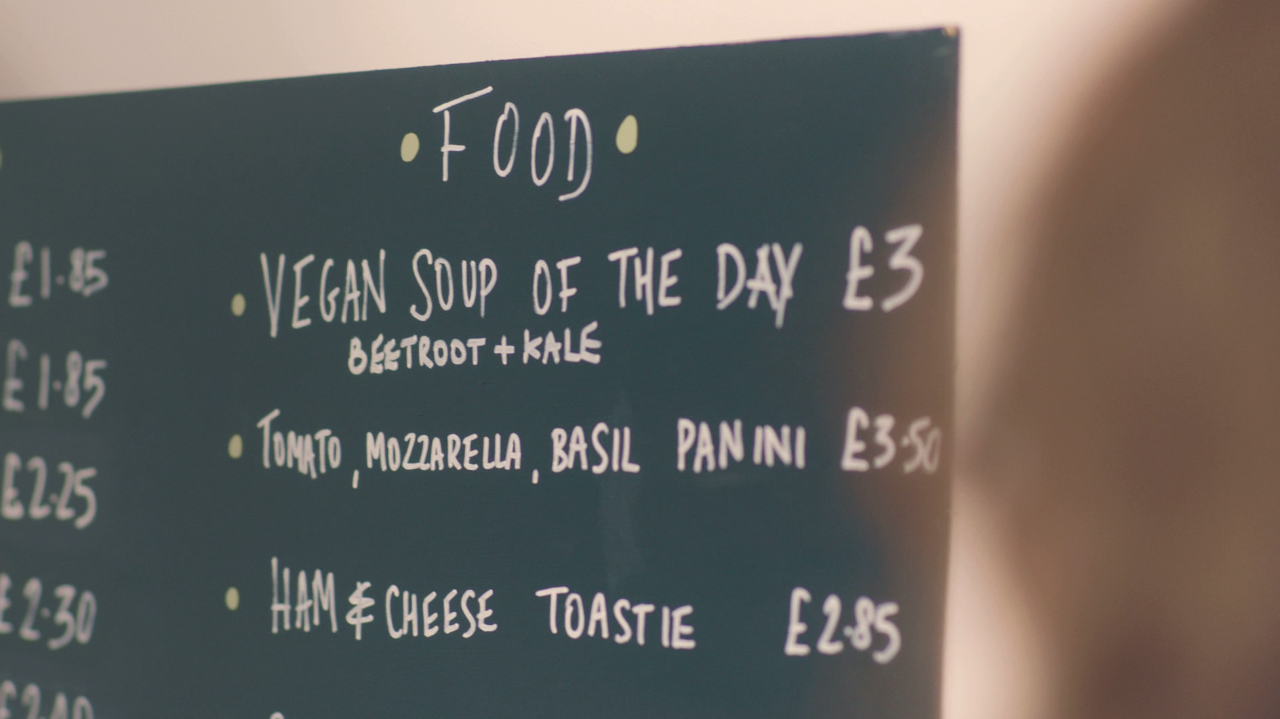 FOOD
£1.85
VEGAN SOUP OF THE DAY £3
BEETROOT + KALE
£1.85
TOMATO, MOZZARELLA, BASIL PANINI £3.50
£2.25
HAM & CHEESE TOASTIE £2.85
£2.30